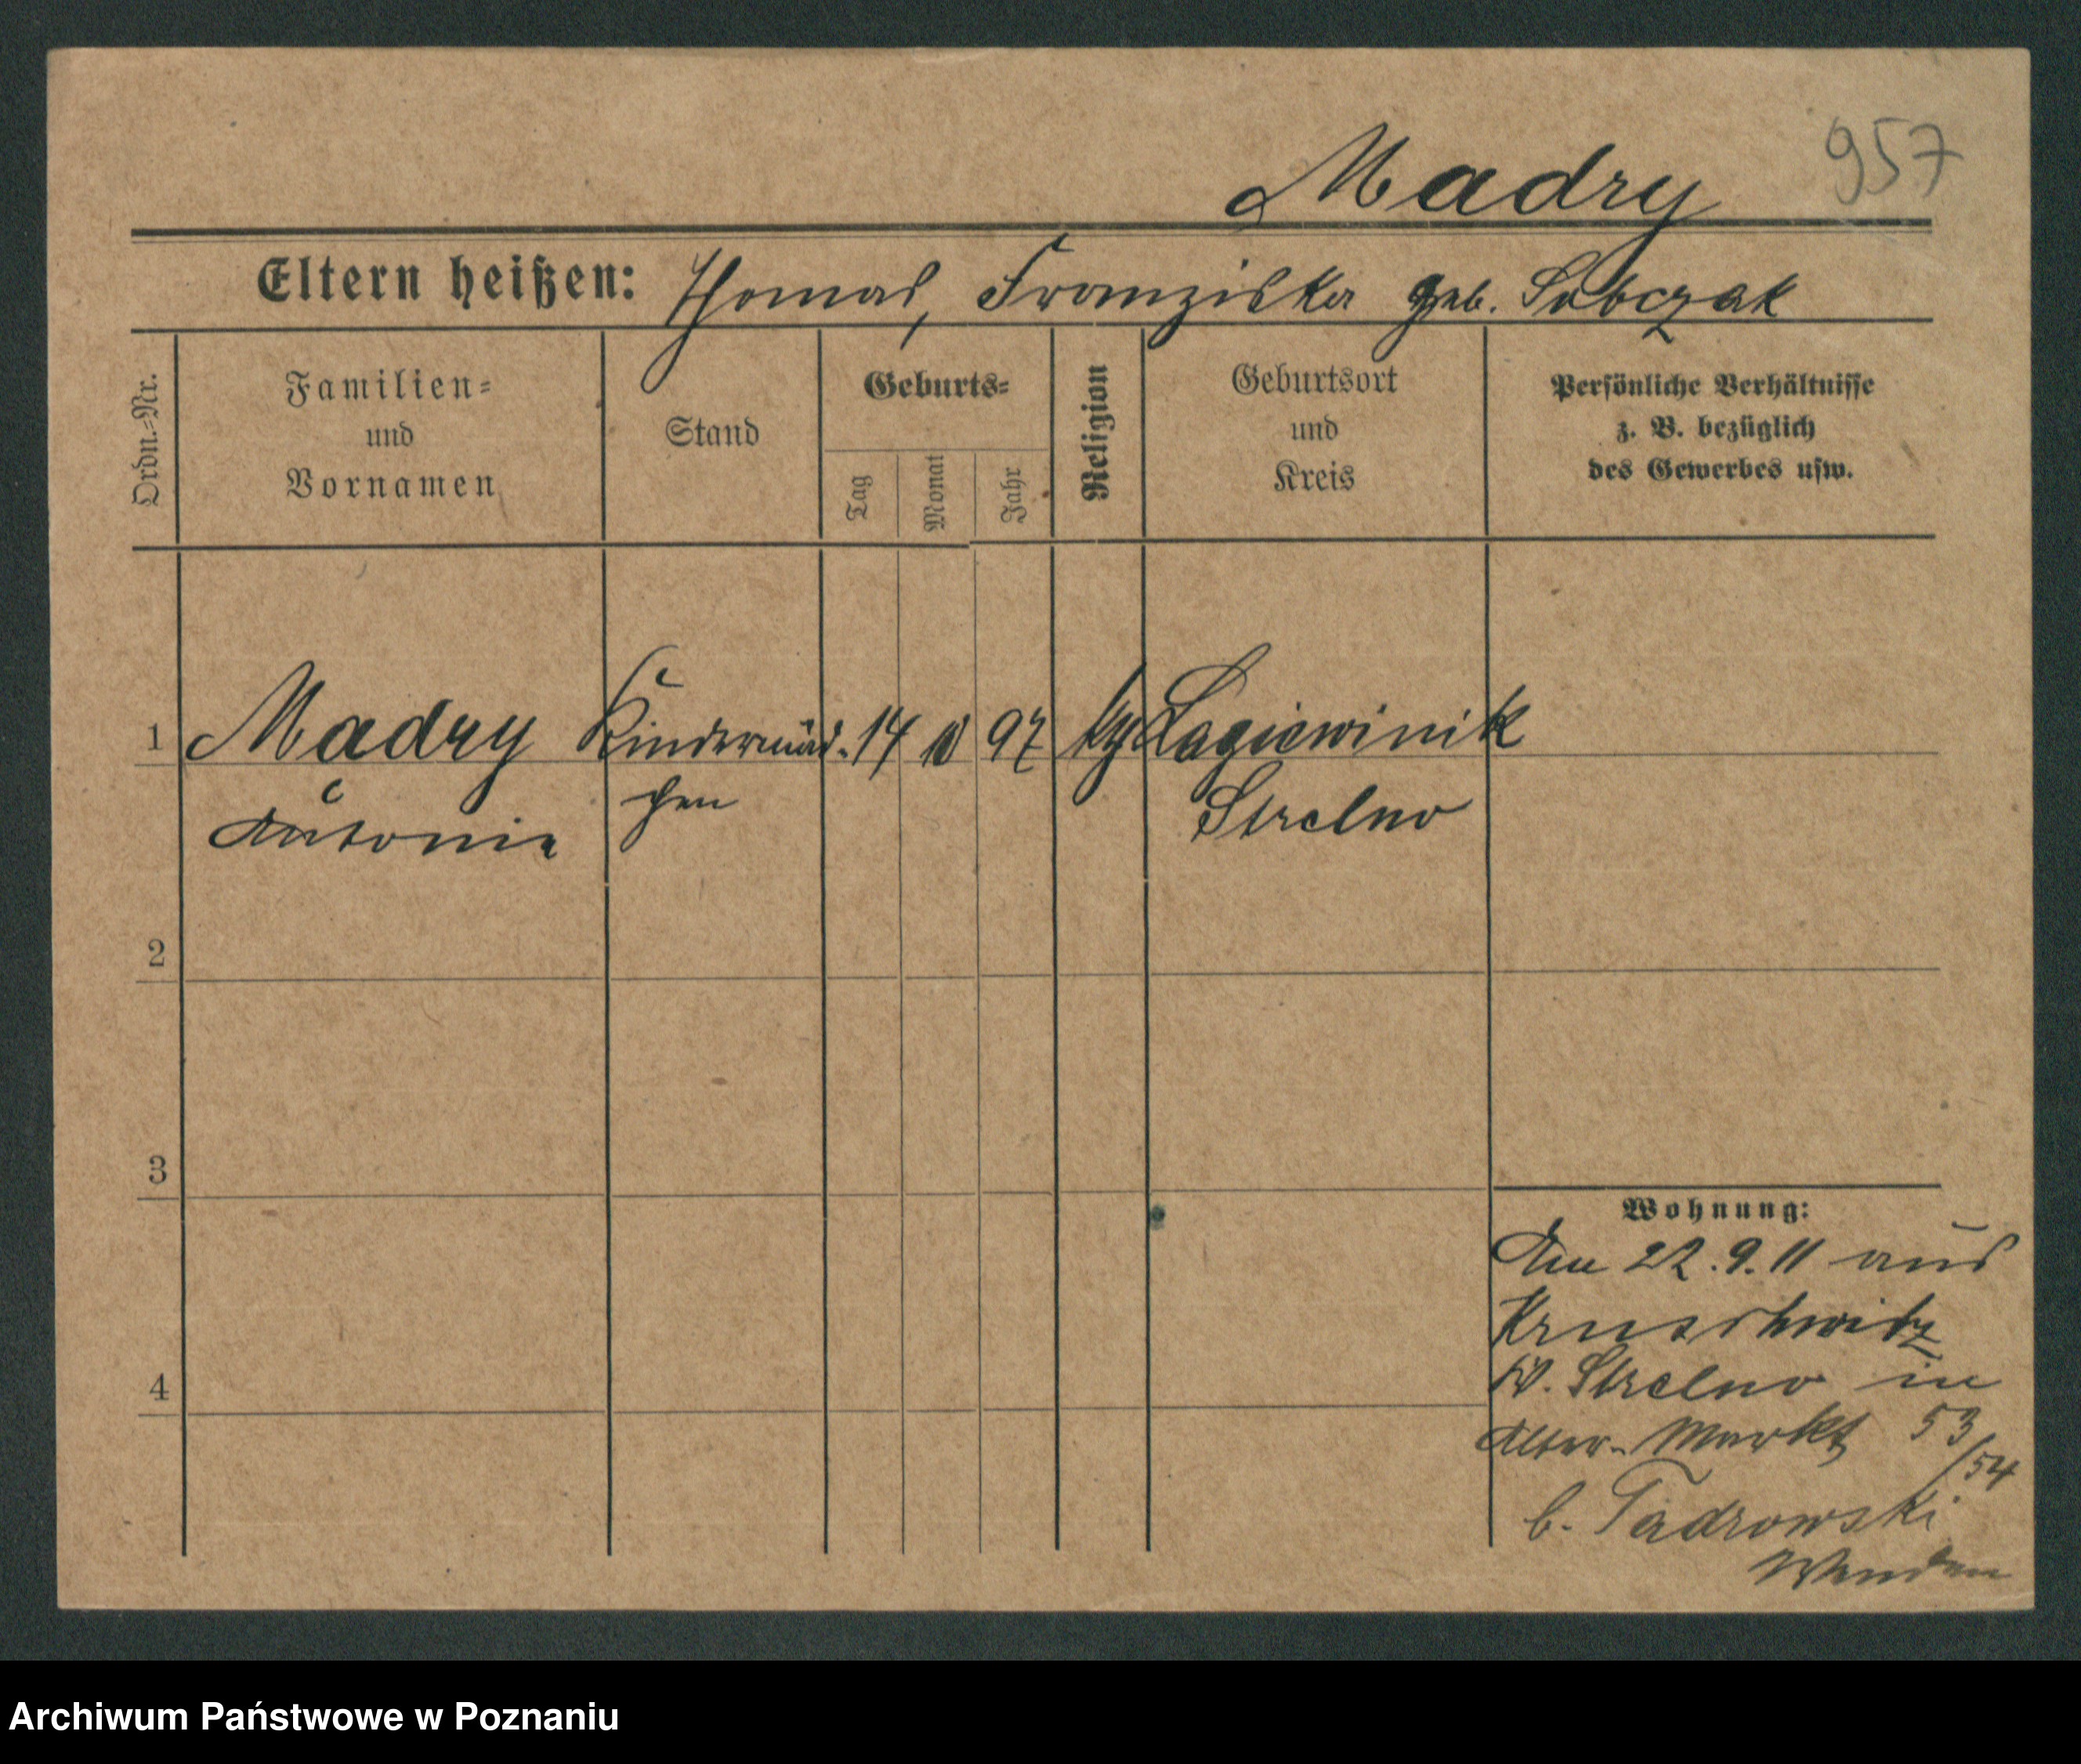 957
Madry
Eltern heißen: Thomas, Franziska geb. Sobczak
Ordn.-Nr.
Familien-
und
Vornamen
Stand
Geburts-
Tag
Monat
Jahr
Religion
Geburtsort
und
Kreis
Persönliche Verhältnisse
z. B. bezüglich
des Gewerbes usw.
1 Madry Kindermäd- 14 10 97 Lagiewinik
Antonie chen Strelno
2
3
4
Wohnung:
Am 22.9.11 aus
Kruschwitz
Strelno in
Alter-Markt 53
/54
b. Tadrowski
Archiwum Państwowe w Poznaniu